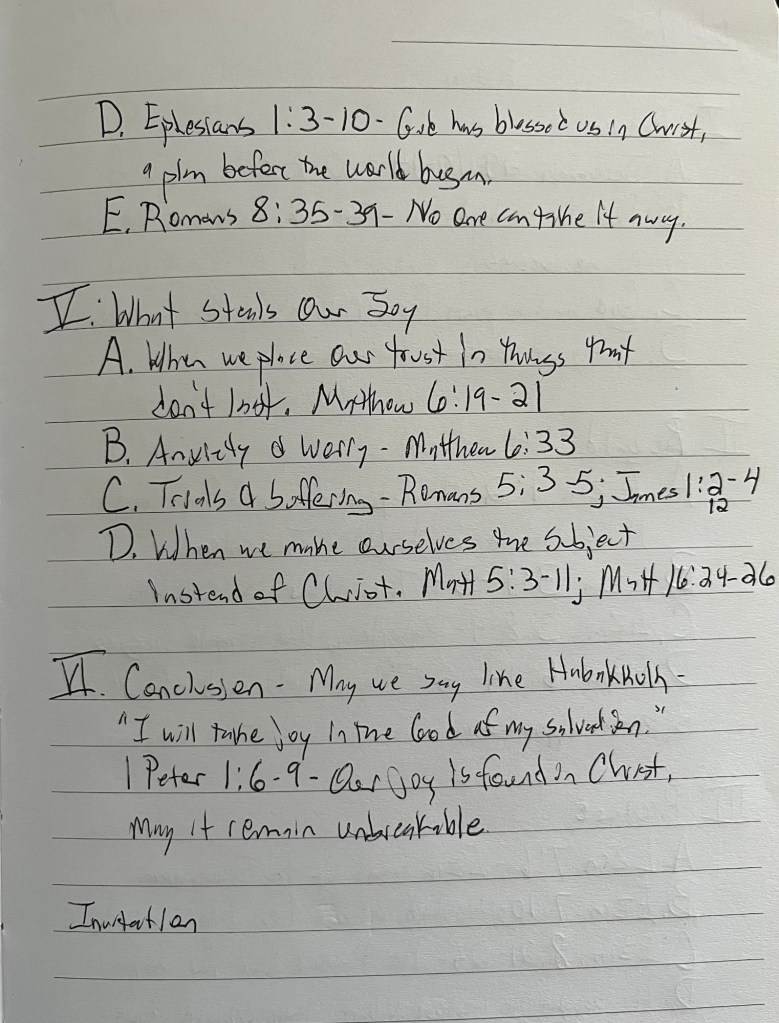 D. Ephesians 1:3-10- God has blessed us in Christ,
a plan before the world began.
E. Romans 8:35-39- No one can take it away.
V. What steals Our Joy
A. When we place our trust in things that
don't last. Matthew 6:19-21
B. Anxiety & Worry - Matthew 6:33
C. Trials & Suffering - Romans 5:3-5; James 1:2-4
12
D. When we make ourselves the subject
instead of Christ. Matt 5:3-11; Matt 16:24-26
VI. Conclusion - May we say like Habakkuk -
"I will take joy in the God of my salvation."
1 Peter 1:6-9- Our joy is found in Christ,
may it remain unbreakable.
Invitation